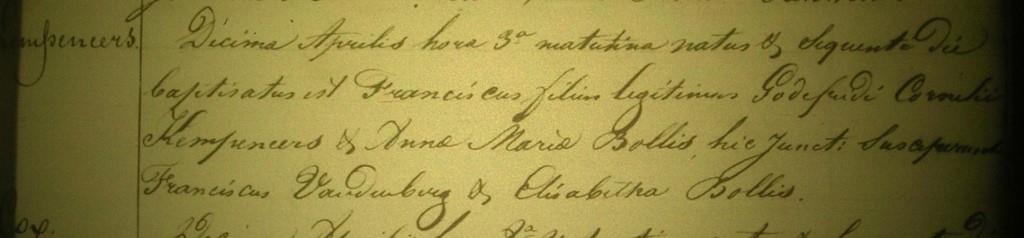 Kempeneers. Decima Aprilis hora 3ª matutina natus & sequenti die
baptisatus est Franciscus filius legitimus Godefridi Cornelii
Kempeneers & Annæ Mariæ Bollis, hic Junct: Susceperunt
Franciscus Vandenberg & Elisabetha Bollis.